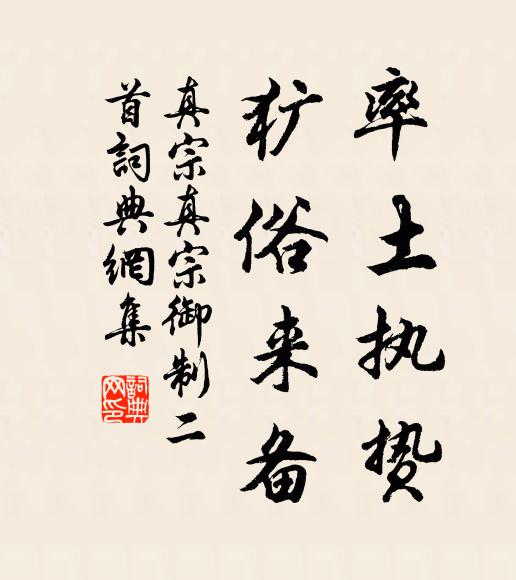 率土执贽
犷俗来备
真宗真宗御制二
首詞典網集
詞典
网印